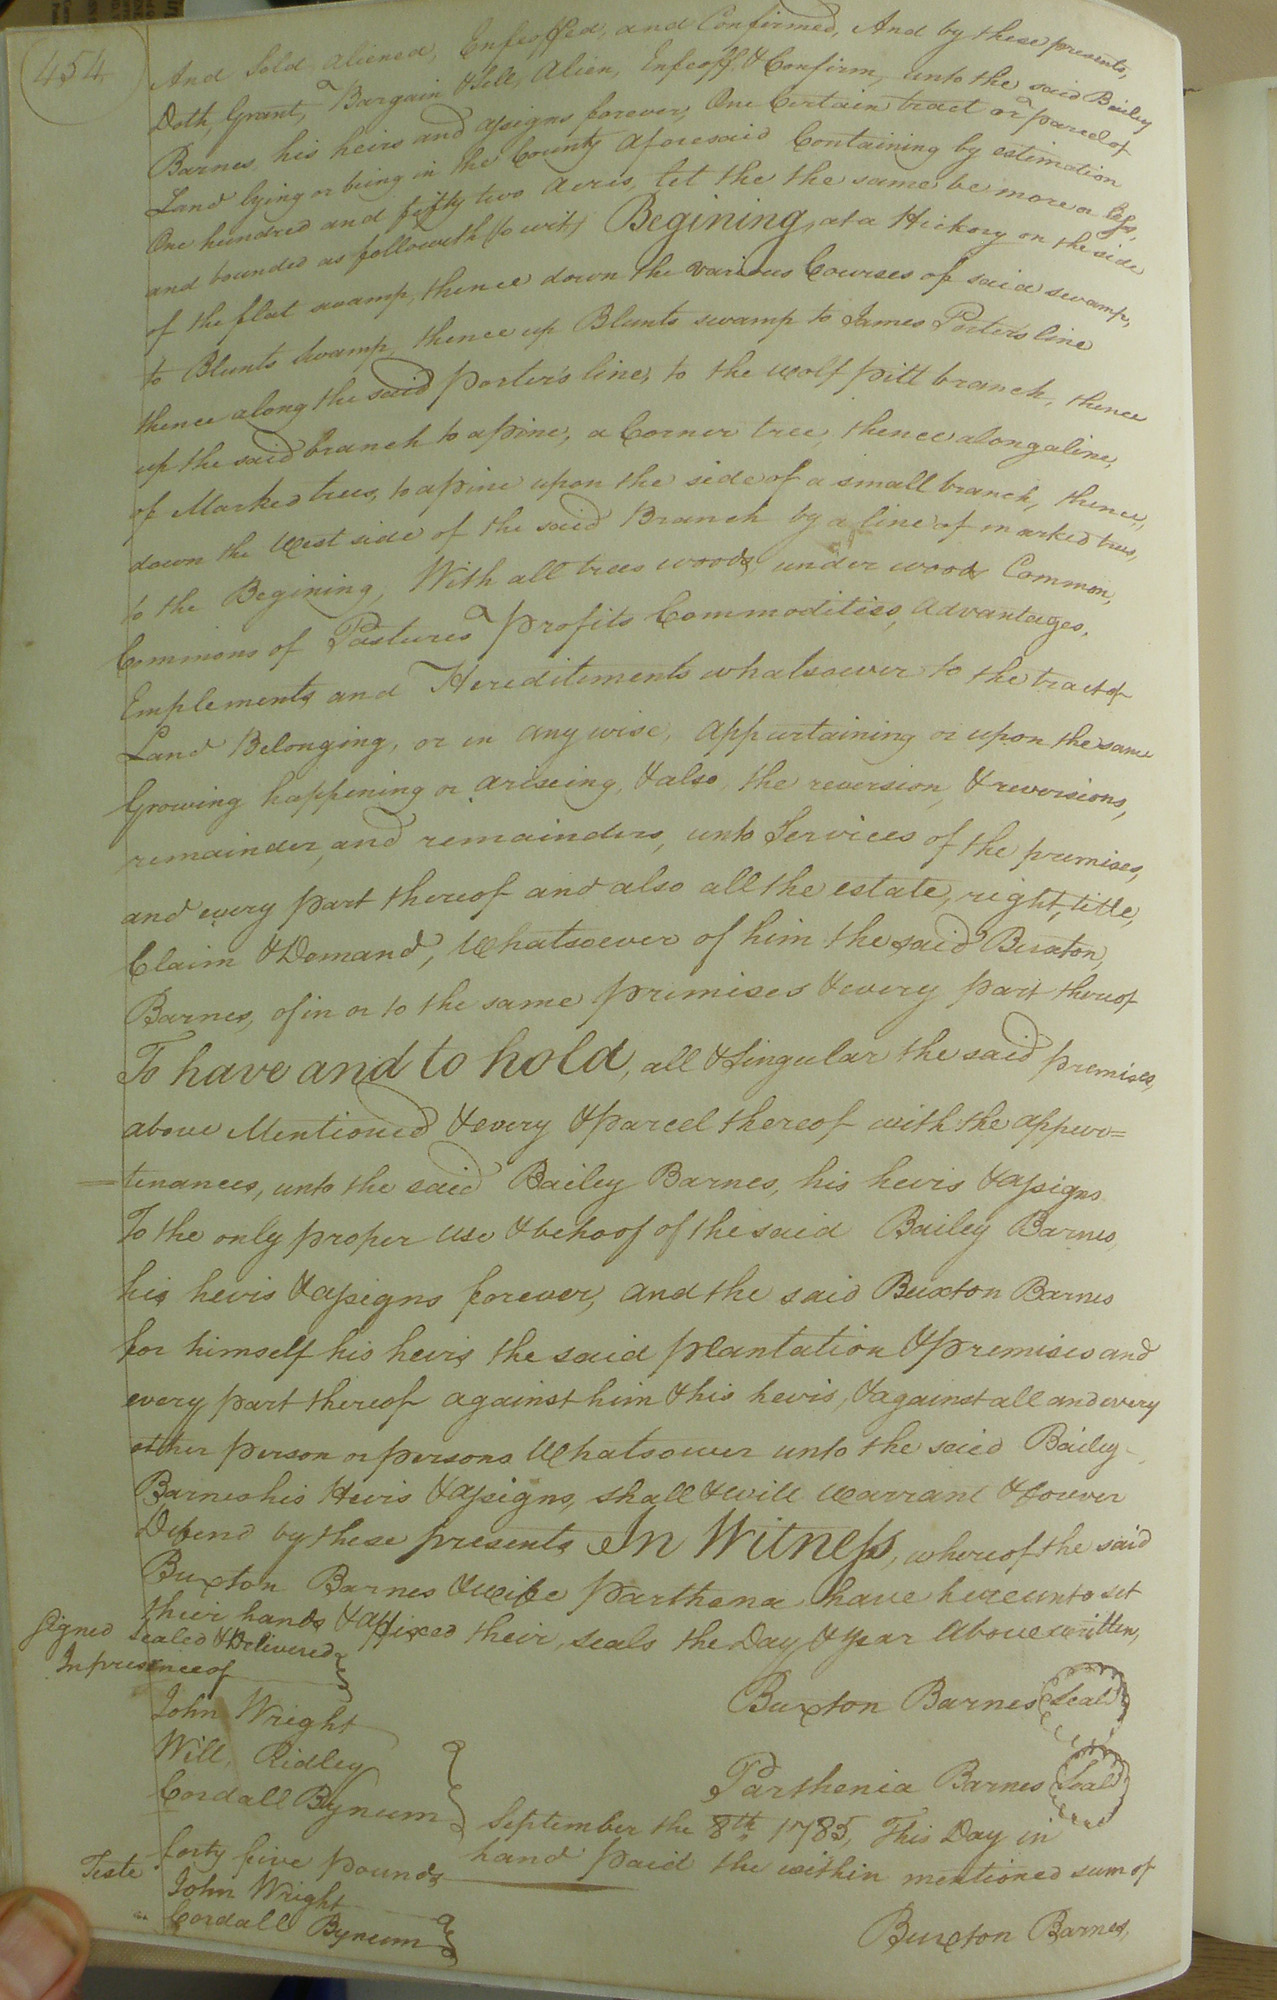 454
And Sold, aliened, Enfeoffed, and Confirmed, And by these presents,
Doth, Grant, Bargain & Sell, Alien, Enfeoff, & Confirm, unto the said Bailey
Barnes, his heirs and assigns forever, One Certain tract or parcel of
Land lying or being in the County Aforesaid Containing by estimation
One hundred and fifty two Acres, let the the same be more or less,
and bounded as followeth (to wit) Begining, at a Hickory on the side
of the flat swamp, thence down the various Courses of said swamp,
to Blunts Swamp, thence up Blunts swamp to James Porters line
thence along the said porter's line, to the wolf pitt branch, thence
up the said branch to a pine, a Corner tree, thence along a line,
of Marked trees, to a pine upon the side of a small branch, thence,
down the West side of the said Branch by a line of marked trees,
to the Begining, With all trees woods, under woods Common,
Commons of Pastures profits Commodities, advantages,
Emplements and Hereditements whatsoever to the tract of
Land Belonging, or in any wise, appurtaining or upon the same
Growing happening or ariseing, & also, the reversion, & reversions,
remainder, and remainders, unto Services of the premises,
and every part thereof and also all the estate, right, title,
Claim & Demand, Whatsoever of him the said Buxton,
Barnes, of in or to the same premises & every part thereof
To have and to hold, all & Singular the said premises,
above Mentioned & every & parcel thereof with the appur=
=tenances, unto the said Bailey Barnes, his heirs & assigns
To the only proper use & behoof of the said Bailey Barnes,
his heirs & assigns forever, and the said Buxton Barnes
for himself his heirs the said plantation & premises and
every part thereof against him & his heirs, & against all and every
other person or persons Whatsoever unto the said Bailey
Barnes his Heirs & assigns, shall & will warrant & forever
Defend by these presents In Witness, whereof the said
Buxton Barnes & wife Parthena have hereunto set
their hands & affixed their, seals the Day & year Above written,
Signed Sealed & Delivered
In presence of
John Wright
Will, Ridley
Cordall Bynum
Buxton Barnes Seal
Parthenia Barnes Seal
September the 8th 1785, This Day in
hand paid the within mentioned sum of
forty five pounds
Teste John Wright
" Cordall Bynum
Buxton Barnes,